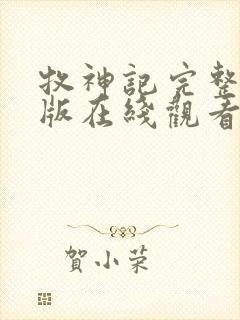 牧神記完整
版在綫觀看
賀小荣